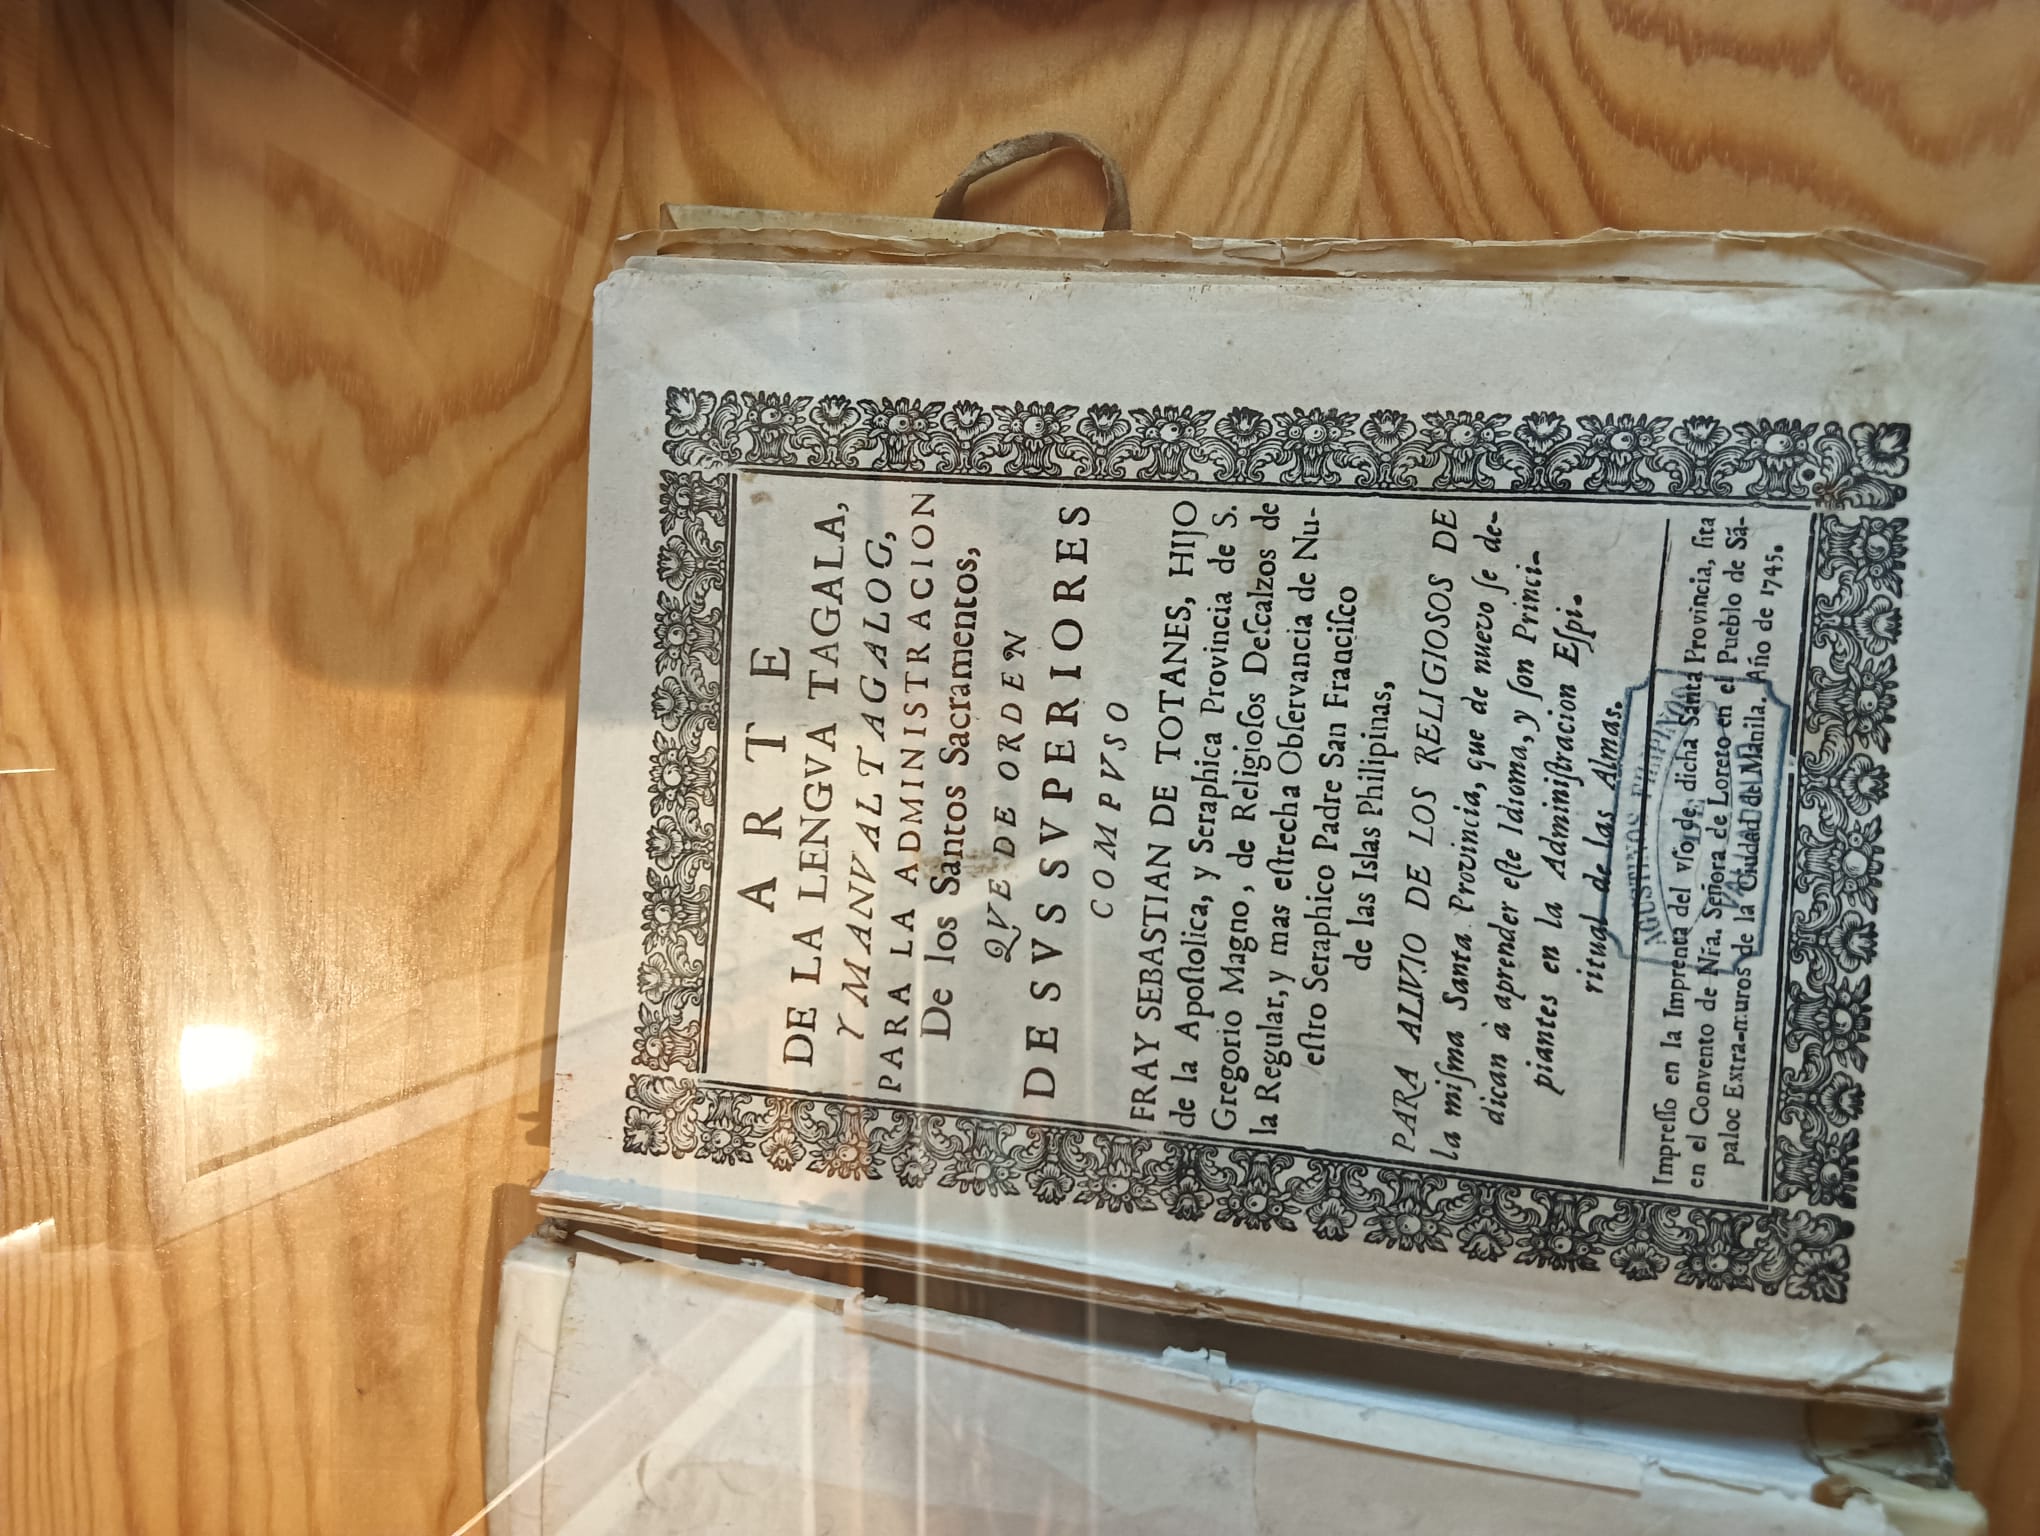 ARTE
DE LA LENGVA TAGALA,
Y MANVAL TAGALOG,
PARA LA ADMINISTRACION
De los Santos Sacramentos,
QVE DE ORDEN
DE SVS SVPERIORES
COMPVSO
FRAY SEBASTIAN DE TOTANES, HIJO
de la Apoſtolica, y Seraphica Provincia de S.
Gregorio Magno, de Religioſos Deſcalzos de
la Regular, y mas eſtrecha Obſervancia de Nu-
eſtro Seraphico Padre San Franciſco
de las Islas Philipinas,
PARA ALIVIO DE LOS RELIGIOSOS DE
la miſma Santa Provincia, que de nuevo ſe de-
dican à aprender eſte Idioma, y ſon Princi-
piantes en la Adminiſtracion Eſpi-
ritual de las Almas.
Impreſſo en la Imprenta del vſo de dicha Santa Provincia, ſita
en el Convento de Nra. Señora de Loreto en el Pueblo de Sã-
paloc Extra-muros de la Ciudad de Manila. Año de 1745.
AGUSTINOS FILIPINOS